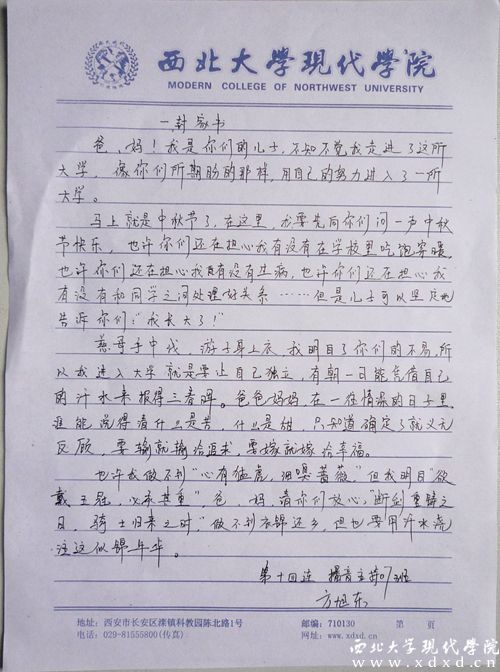 西北大学现代学院
MODERN COLLEGE OF NORTHWEST UNIVERSITY
一封家书
爸、妈！我是你们的儿子，不知不觉我走进了这所
大学，像你们所期盼的那样，用自己的努力进入了一所
大学。
马上就是中秋节了，在这里，我要先向你们问一声中秋
节快乐，也许你们还在担心我有没有在学校里吃饱穿暖，
也许你们还在担心我有没有生病，也许你们还在担心我
有没有和同学之间处理好关系……但是儿子可以坚定地
告诉你们："我长大了！"
慈母手中线，游子身上衣，我明白了你们的不易，所
以我进入大学就是要让自己独立，有朝一日能凭借自己
的汗水来报得三春晖。爸爸妈妈，在一往情深的日子里，
谁能说得清什么是苦，什么是甜，只知道确定了就义无
反顾，要输就输给追求，要嫁就嫁给幸福。
也许我做不到"心有猛虎，细嗅蔷薇"，但我明白"欲
戴王冠，必承其重"，爸、妈，请你们放心，"断剑重铸之
日，骑士归来之时"，做不到衣锦还乡，但也要用汗水浇
注这似锦年华。
第十四连 播音主持07班
方旭东
地址：西安市长安区滦镇科教园陈北路1号
邮编：710130
第 页
电话：029-81555800(传真)
网址：www.xdxd.cn
西北大学现代学院
www.xdxd.cn